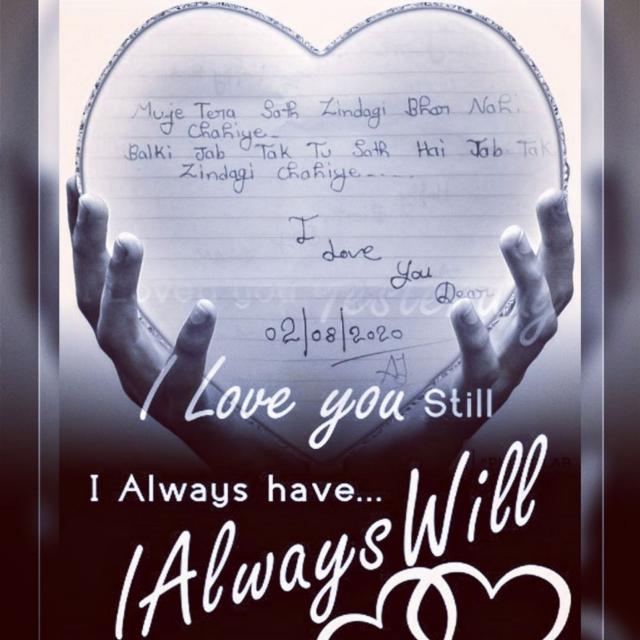 Muje Tera Sath Zindagi Bhar Nahi
Chahiye
Balki Jab Tak Tu Sath Hai Jab Tak
Zindagi Chahiye.....
I
Love
You
Dear
I Loved you Yesterday
02/08/2020
AJ
I Love you Still
I Always have...
I Always Will